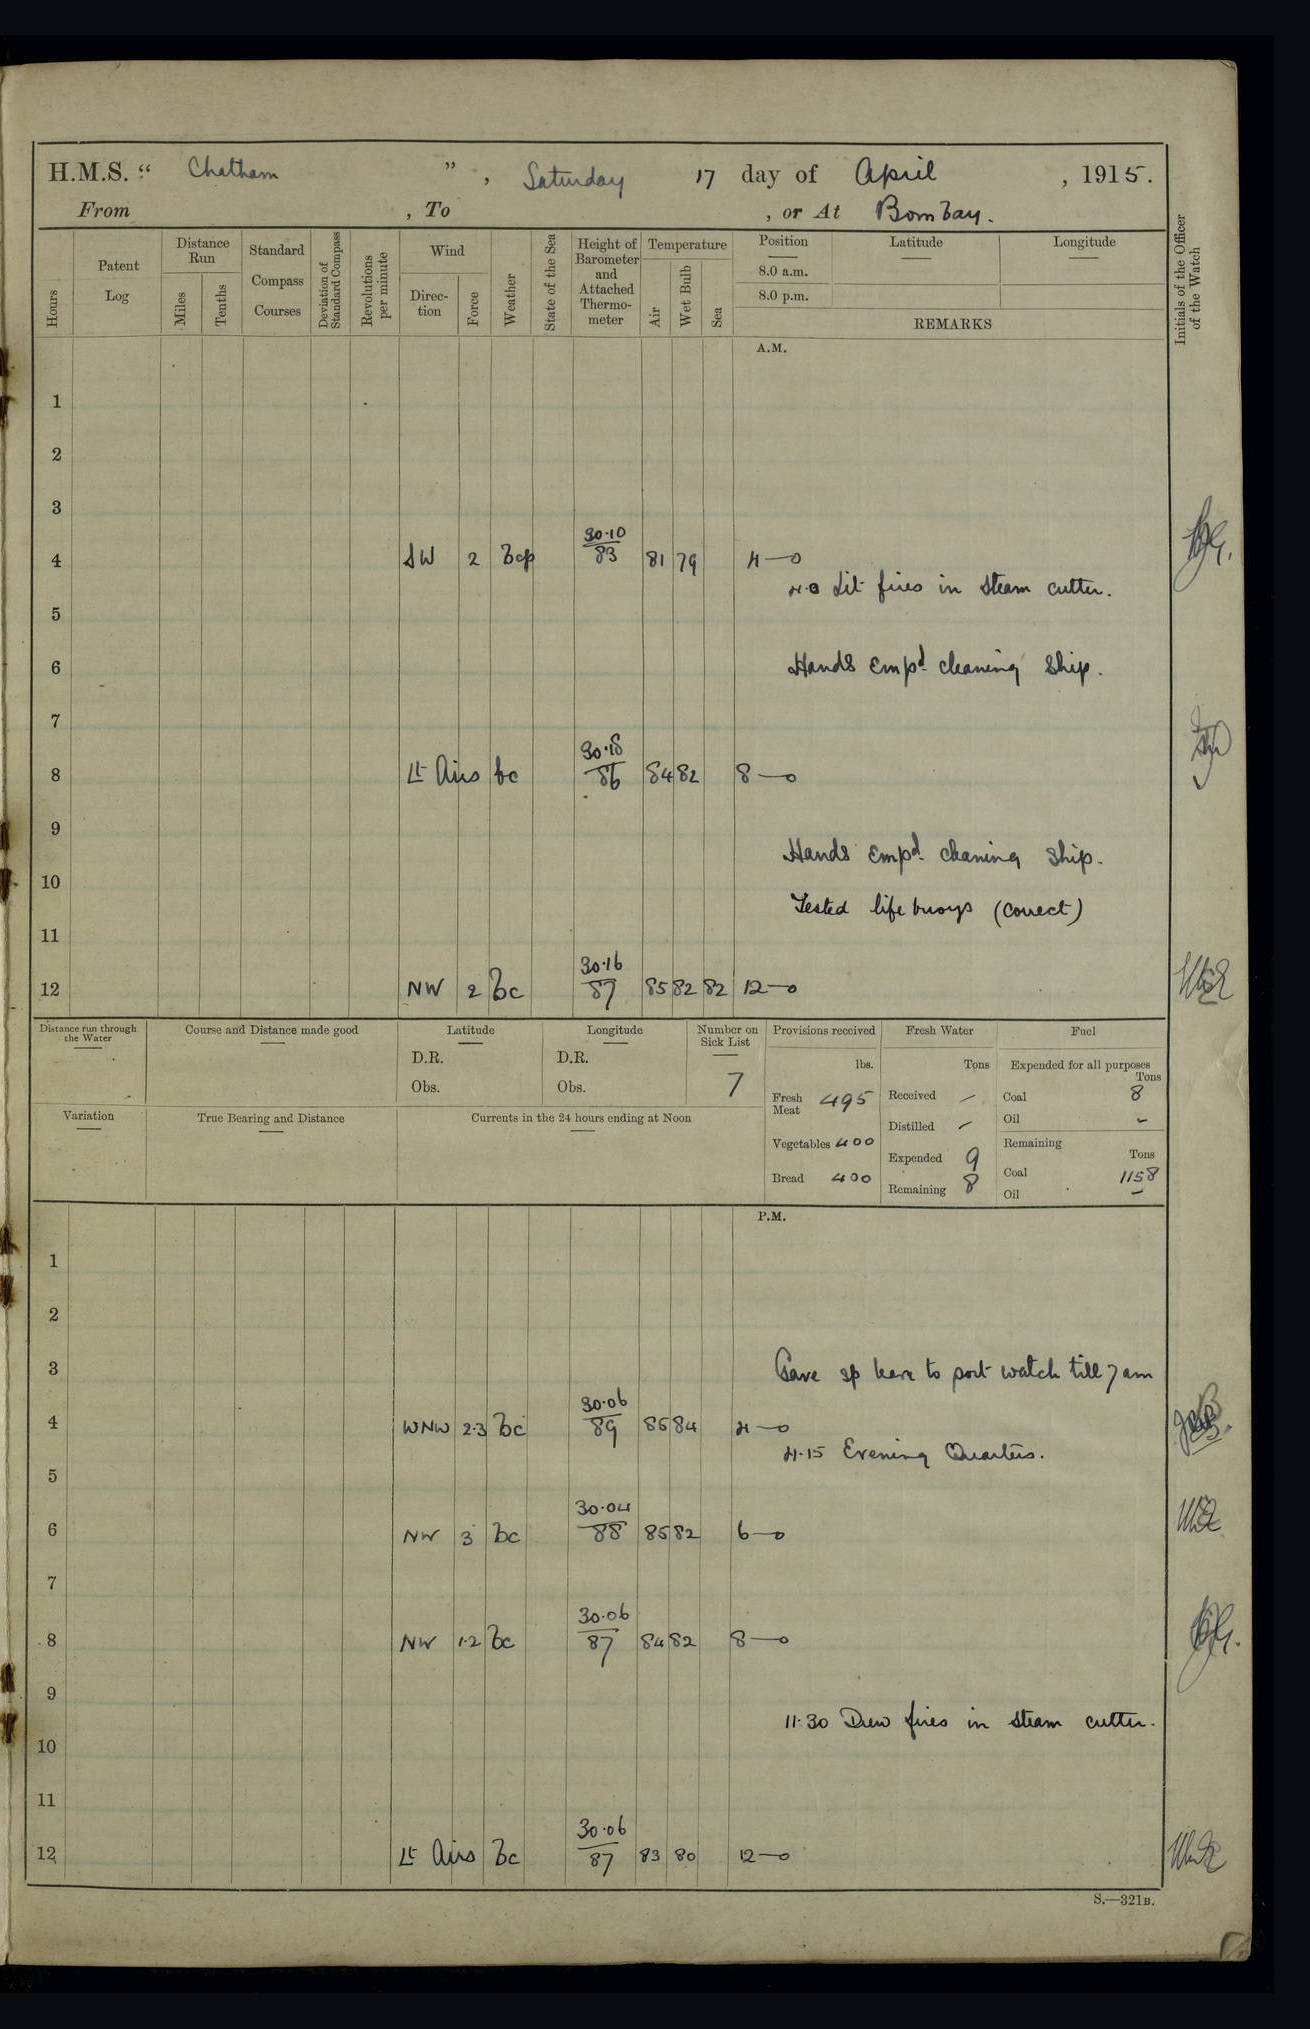 H.M.S. "Chatham", Saturday 17 day of April, 1915.
From , To , or At Bombay.
Hours
Patent Log
Distance Run
Miles
Tenths
Standard Compass Courses
Deviation of Standard Compass
Revolutions per minute
Wind
Direc-tion
Force
Weather
State of the Sea
Height of Barometer and Attached Thermo-meter
Temperature
Air
Wet Bulb
Sea
Position
8.0 a.m.
8.0 p.m.
Latitude
Longitude
REMARKS
Initials of the Officer of the Watch
A.M.
1
2
3
4 SW 2 bcp 30.10 83 81 79 4—o
4.0 Lit fires in Steam cutter.
5
6 Hands Empd. cleaning Ship.
7
8 Lt Airs bc 30.18 86 84 82 8—o
9
Hands Empd. cleaning Ship.
10
Tested life buoys (Correct)
11
12 NW 2 bc 30.16 87 85 82 82 12—o
Distance run through the Water
Course and Distance made good
Latitude
D.R.
Obs.
Longitude
D.R.
Obs.
Number on Sick List
7
Variation
True Bearing and Distance
Currents in the 24 hours ending at Noon
Provisions received
lbs.
Fresh Meat 495
Vegetables 400
Bread 400
Fresh Water
Tons
Received –
Distilled –
Expended 9
Remaining 8
Fuel
Expended for all purposes
Tons
Coal 8
Oil –
Remaining
Tons
Coal 1158
Oil –
P.M.
1
2
3 Gave sp leave to port watch till 7 am
4 WNW 2.3 bc 30.06 89 86 84 4—o
4.15 Evening Quarters.
5
6 NW 3 bc 30.04 88 85 82 6—o
7
8 NW 1.2 bc 30.06 87 84 82 8—o
9
11.30 Drew fires in Steam cutter.
10
11
12 Lt Airs bc 30.06 87 83 80 12—o
S.—321B.